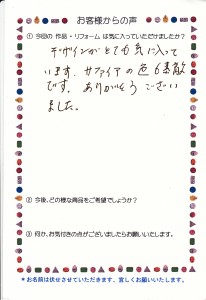 お客様からの声
① 今回の 作品・リフォーム は気に入っていただけましたか？
デザインがとても気に入って
います。サファイアの色も素敵
です。ありがとうござい
ました。
② 今後、どの様な商品をご希望でしょうか？
③ 何か、お気付きの点がございましたらお願いいたします。
＊お名前は伏せさせていただきます。宜しくお願いいたします。